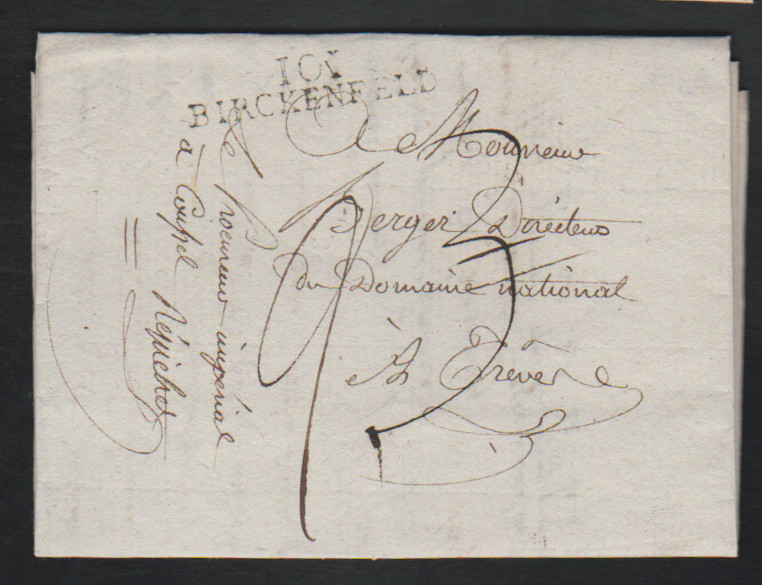 101
BIRCKENFELD
A Monsieur
Berger Directeur
du Domaine national
à Trêves
Le Procureur impérial
à
93